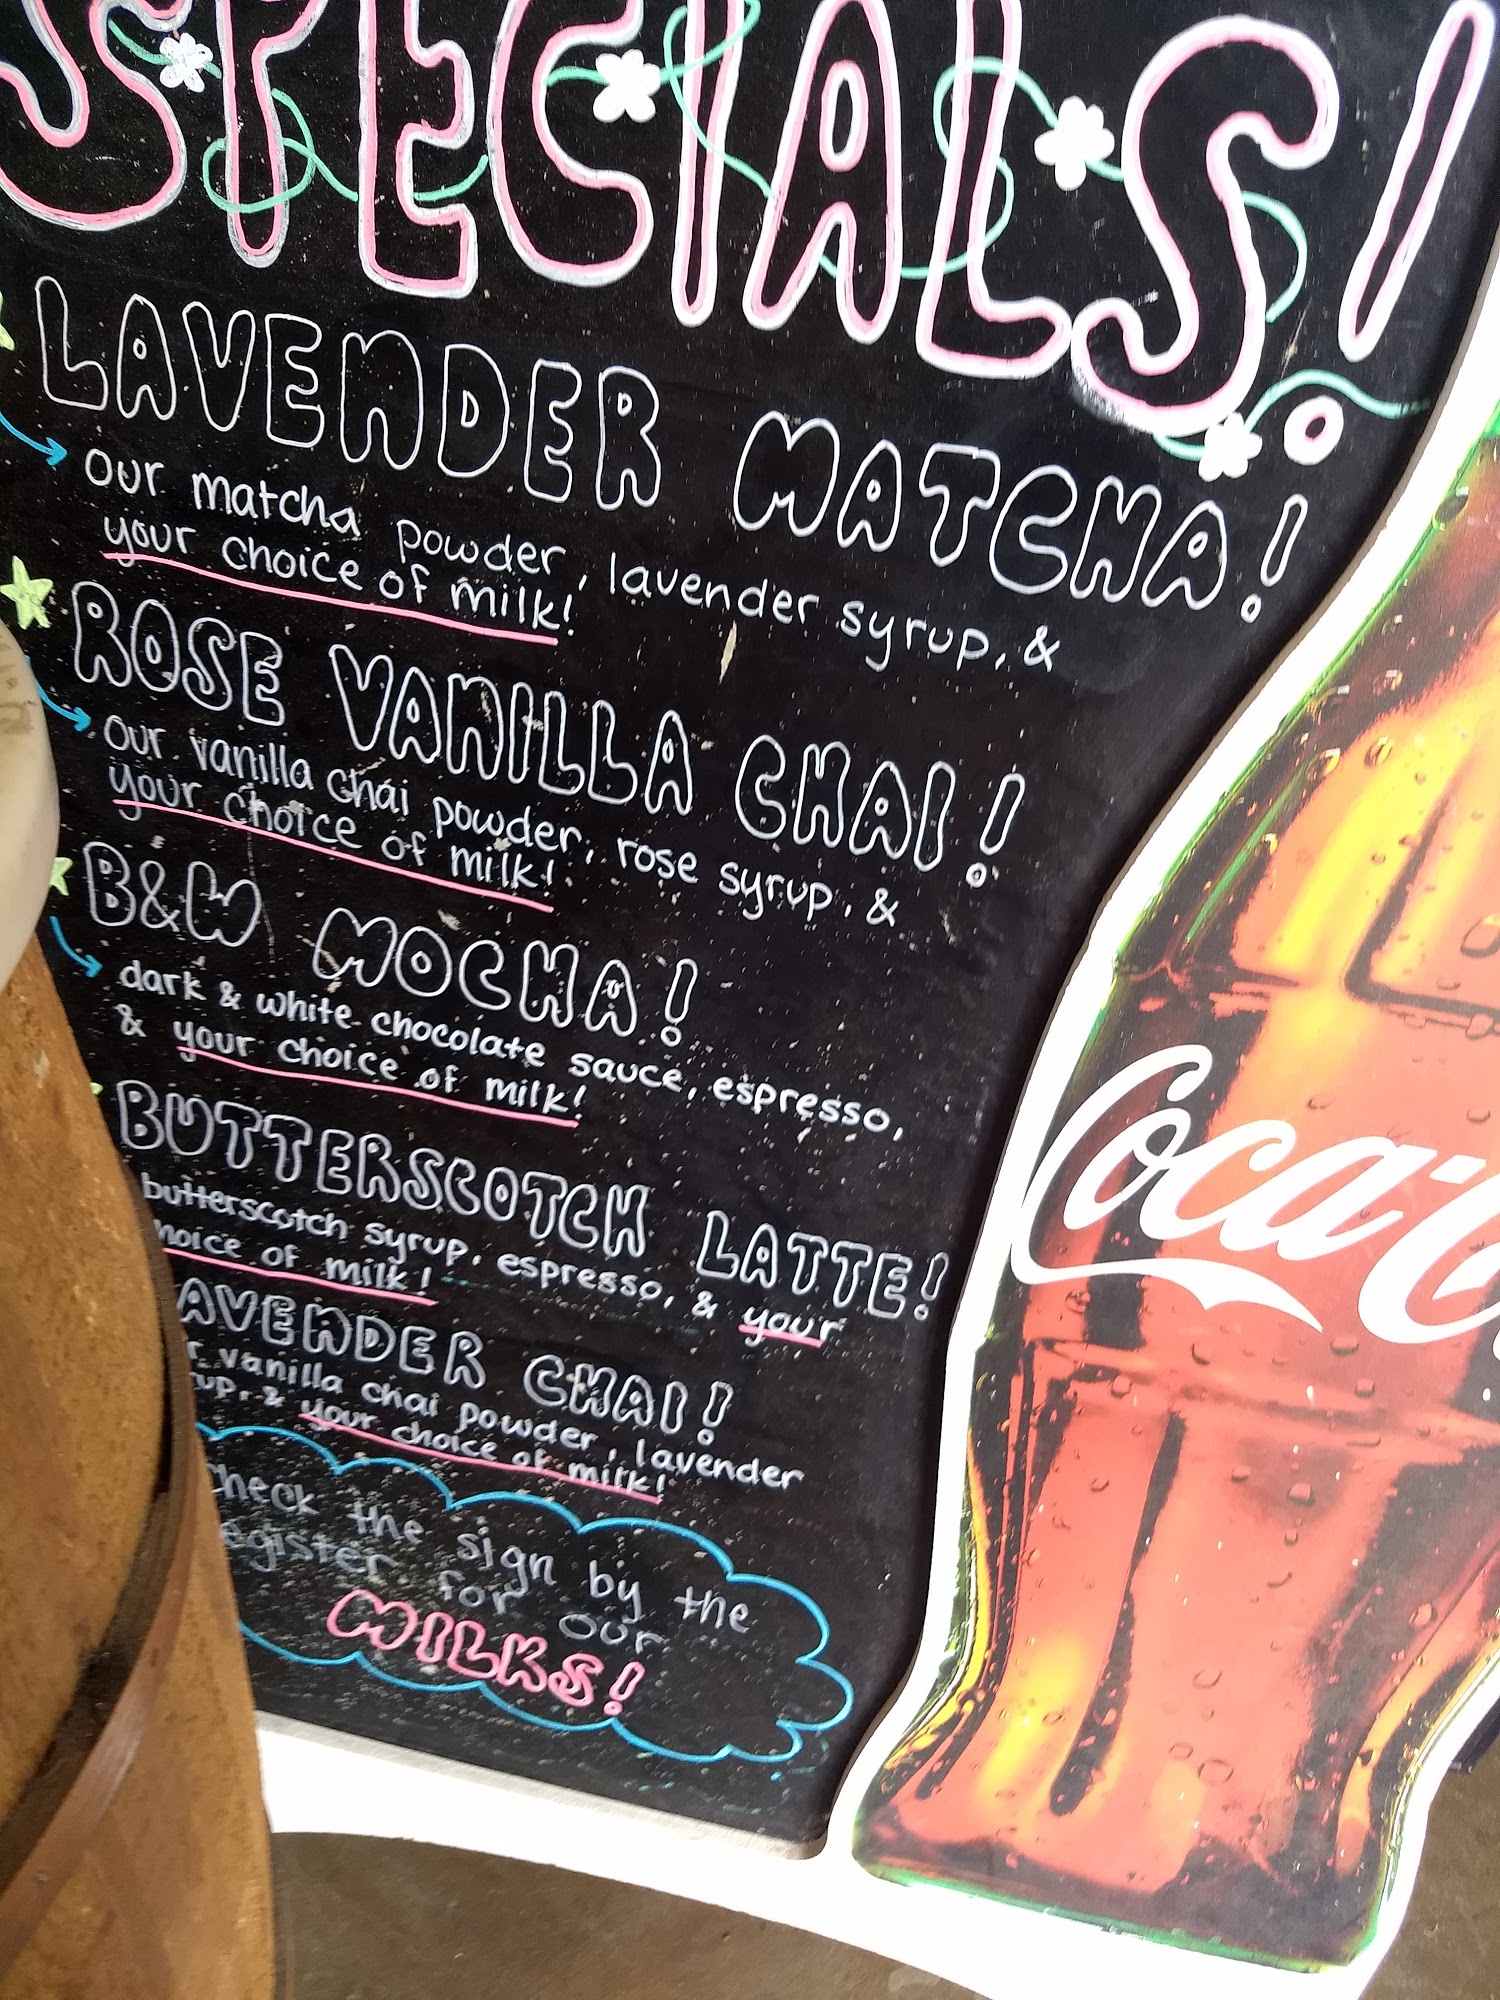 SPECIALS!
LAVENDER MATCHA!
our matcha powder, lavender syrup, &
your choice of milk!
ROSE VANILLA CHAI!
our vanilla chai powder, rose syrup, &
your choice of milk!
B&W MOCHA!
dark & white chocolate sauce, espresso,
& your choice of milk!
BUTTERSCOTCH LATTE!
butterscotch syrup, espresso, & your
hoice of milk!
AVENDER CHAI!
r vanilla chai powder, lavender
rup, & your choice of milk!
check the sign by the
egister for our
MILKS!
Coca-C